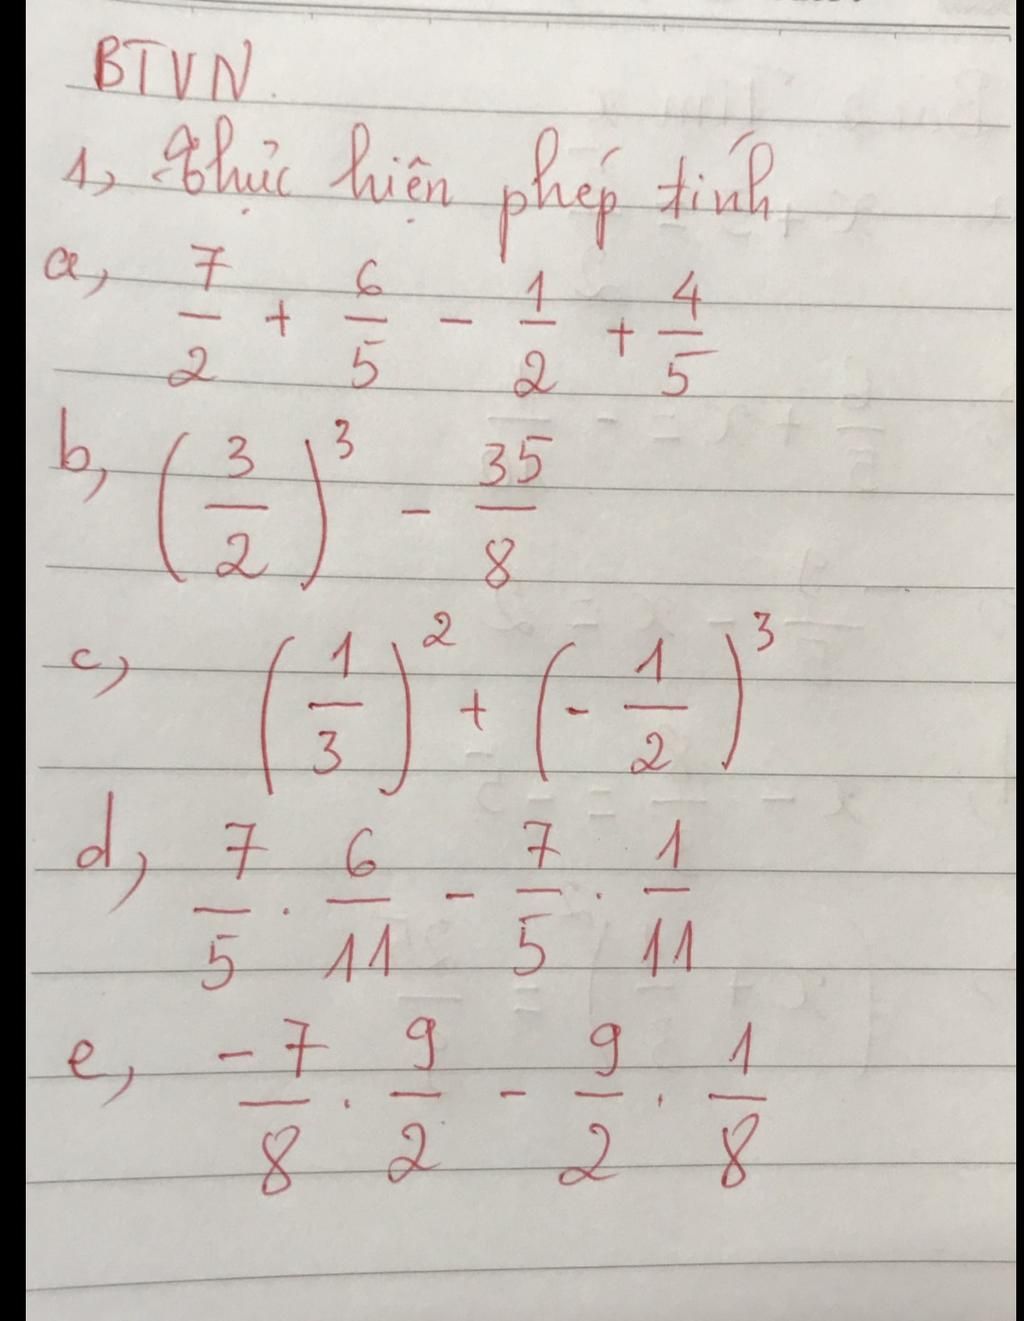 BTVN.
1, Thực hiện phép tính
a, 7/2 + 6/5 - 1/2 + 4/5
b, (3/2)³ - 35/8
c, (1/3)² + (-1/2)³
d, 7/5 . 6/11 - 7/5 . 1/11
e, -7/8 . 9/2 - 9/2 . 1/8